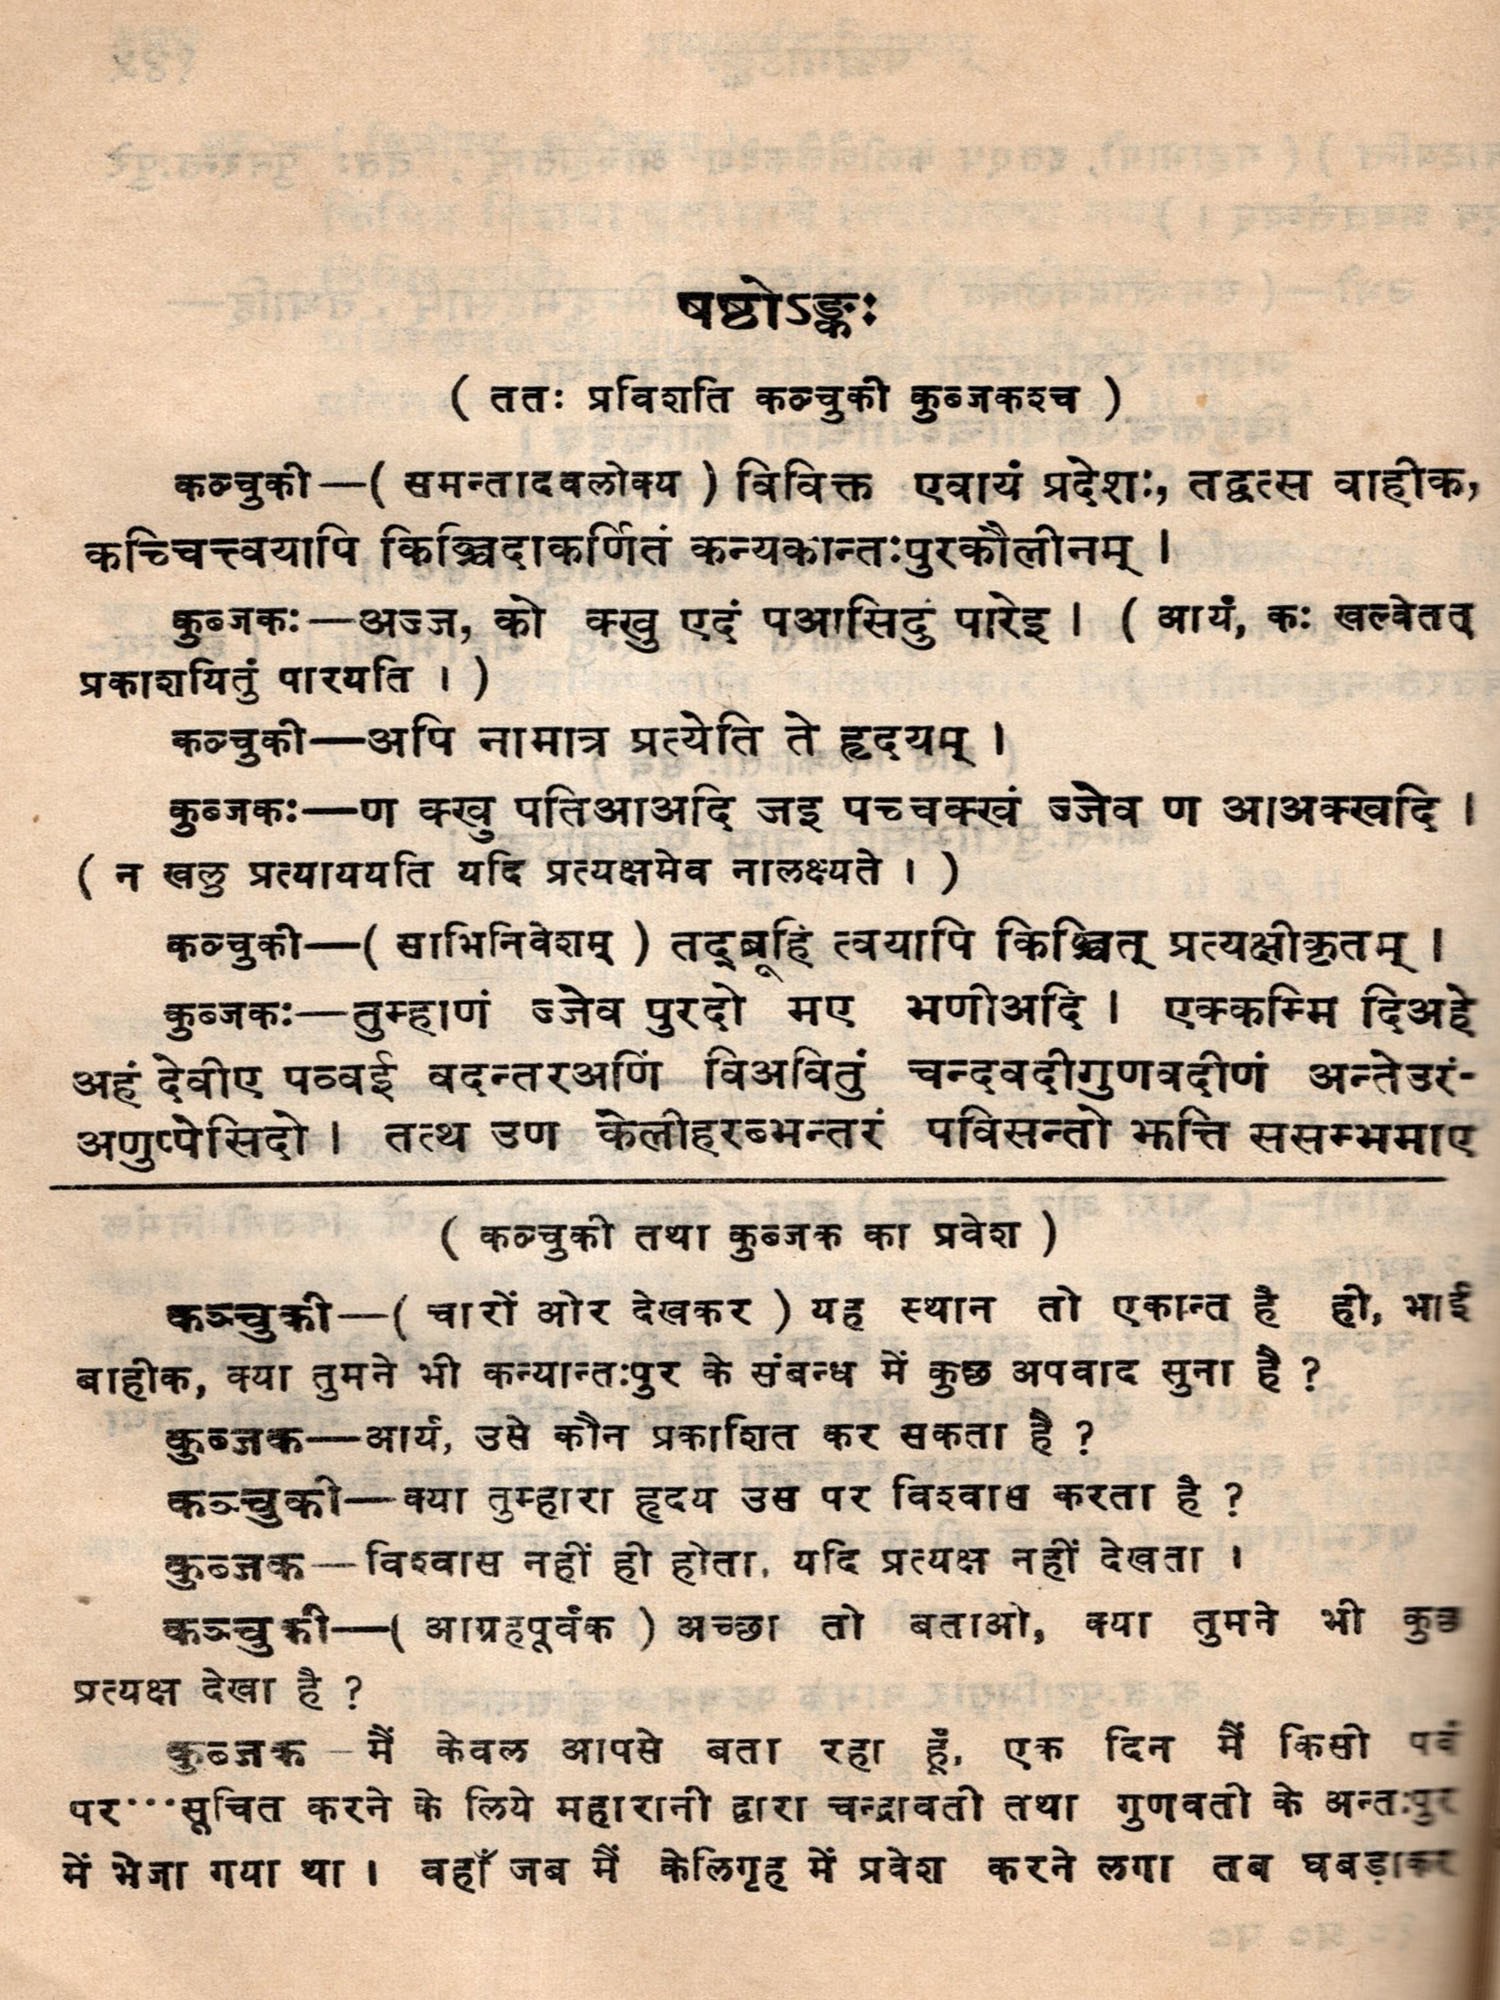 षष्ठोऽङ्कः
( ततः प्रविशति कञ्चुकी कुब्जकश्च )
कञ्चुकी—( समन्तादवलोक्य ) विविक्त एवायं प्रदेशः, तद्वत्स वाहीक,
कच्चित्त्वयापि किञ्चिदाकर्णितं कन्यकान्तःपुरकौलीनम् ।
कुब्जकः—अज्ज, को क्खु एदं पआसिदुं पारेइ । ( आर्य, कः खल्वेतत्
प्रकाशयितुं पारयति । )
कञ्चुकी—अपि नामात्र प्रत्येति ते हृदयम् ।
कुब्जकः—ण क्खु पतिआअदि जइ पच्चक्खं ज्जेव ण आअक्खदि ।
( न खलु प्रत्याययति यदि प्रत्यक्षमेव नालक्ष्यते । )
कञ्चुकी—( साभिनिवेशम् ) तद्ब्रूहि त्वयापि किञ्चित् प्रत्यक्षीकृतम् ।
कुब्जकः—तुम्हाणं ज्जेव पुरदो मए भणीअदि । एक्कम्मि दिअहे
अहं देवीए पव्वई वदन्तरअणिं विअवितुं चन्दवदीगुणवदीणं अन्तेउरं-
अणुप्पेसिदो । तत्थ उण केलीहरब्भन्तरं पविसन्तो झत्ति ससम्भमाए
( कञ्चुकी तथा कुब्जक का प्रवेश )
कञ्चुकी—( चारों ओर देखकर ) यह स्थान तो एकान्त है ही, भाई
बाहीक, क्या तुमने भी कन्यान्तःपुर के संबन्ध में कुछ अपवाद सुना है ?
कुब्जक—आर्य, उसे कौन प्रकाशित कर सकता है ?
कञ्चुकी—क्या तुम्हारा हृदय उस पर विश्वास करता है ?
कुब्जक—विश्वास नहीं ही होता, यदि प्रत्यक्ष नहीं देखता ।
कञ्चुकी—( आग्रहपूर्वक ) अच्छा तो बताओ, क्या तुमने भी कुछ
प्रत्यक्ष देखा है ?
कुब्जक—मैं केवल आपसे बता रहा हूँ, एक दिन मैं किसी पर्व
पर···सूचित करने के लिये महारानी द्वारा चन्द्रावती तथा गुणवती के अन्तःपुर
में भेजा गया था । वहाँ जब मैं केलिगृह में प्रवेश करने लगा तब घबड़ाकर